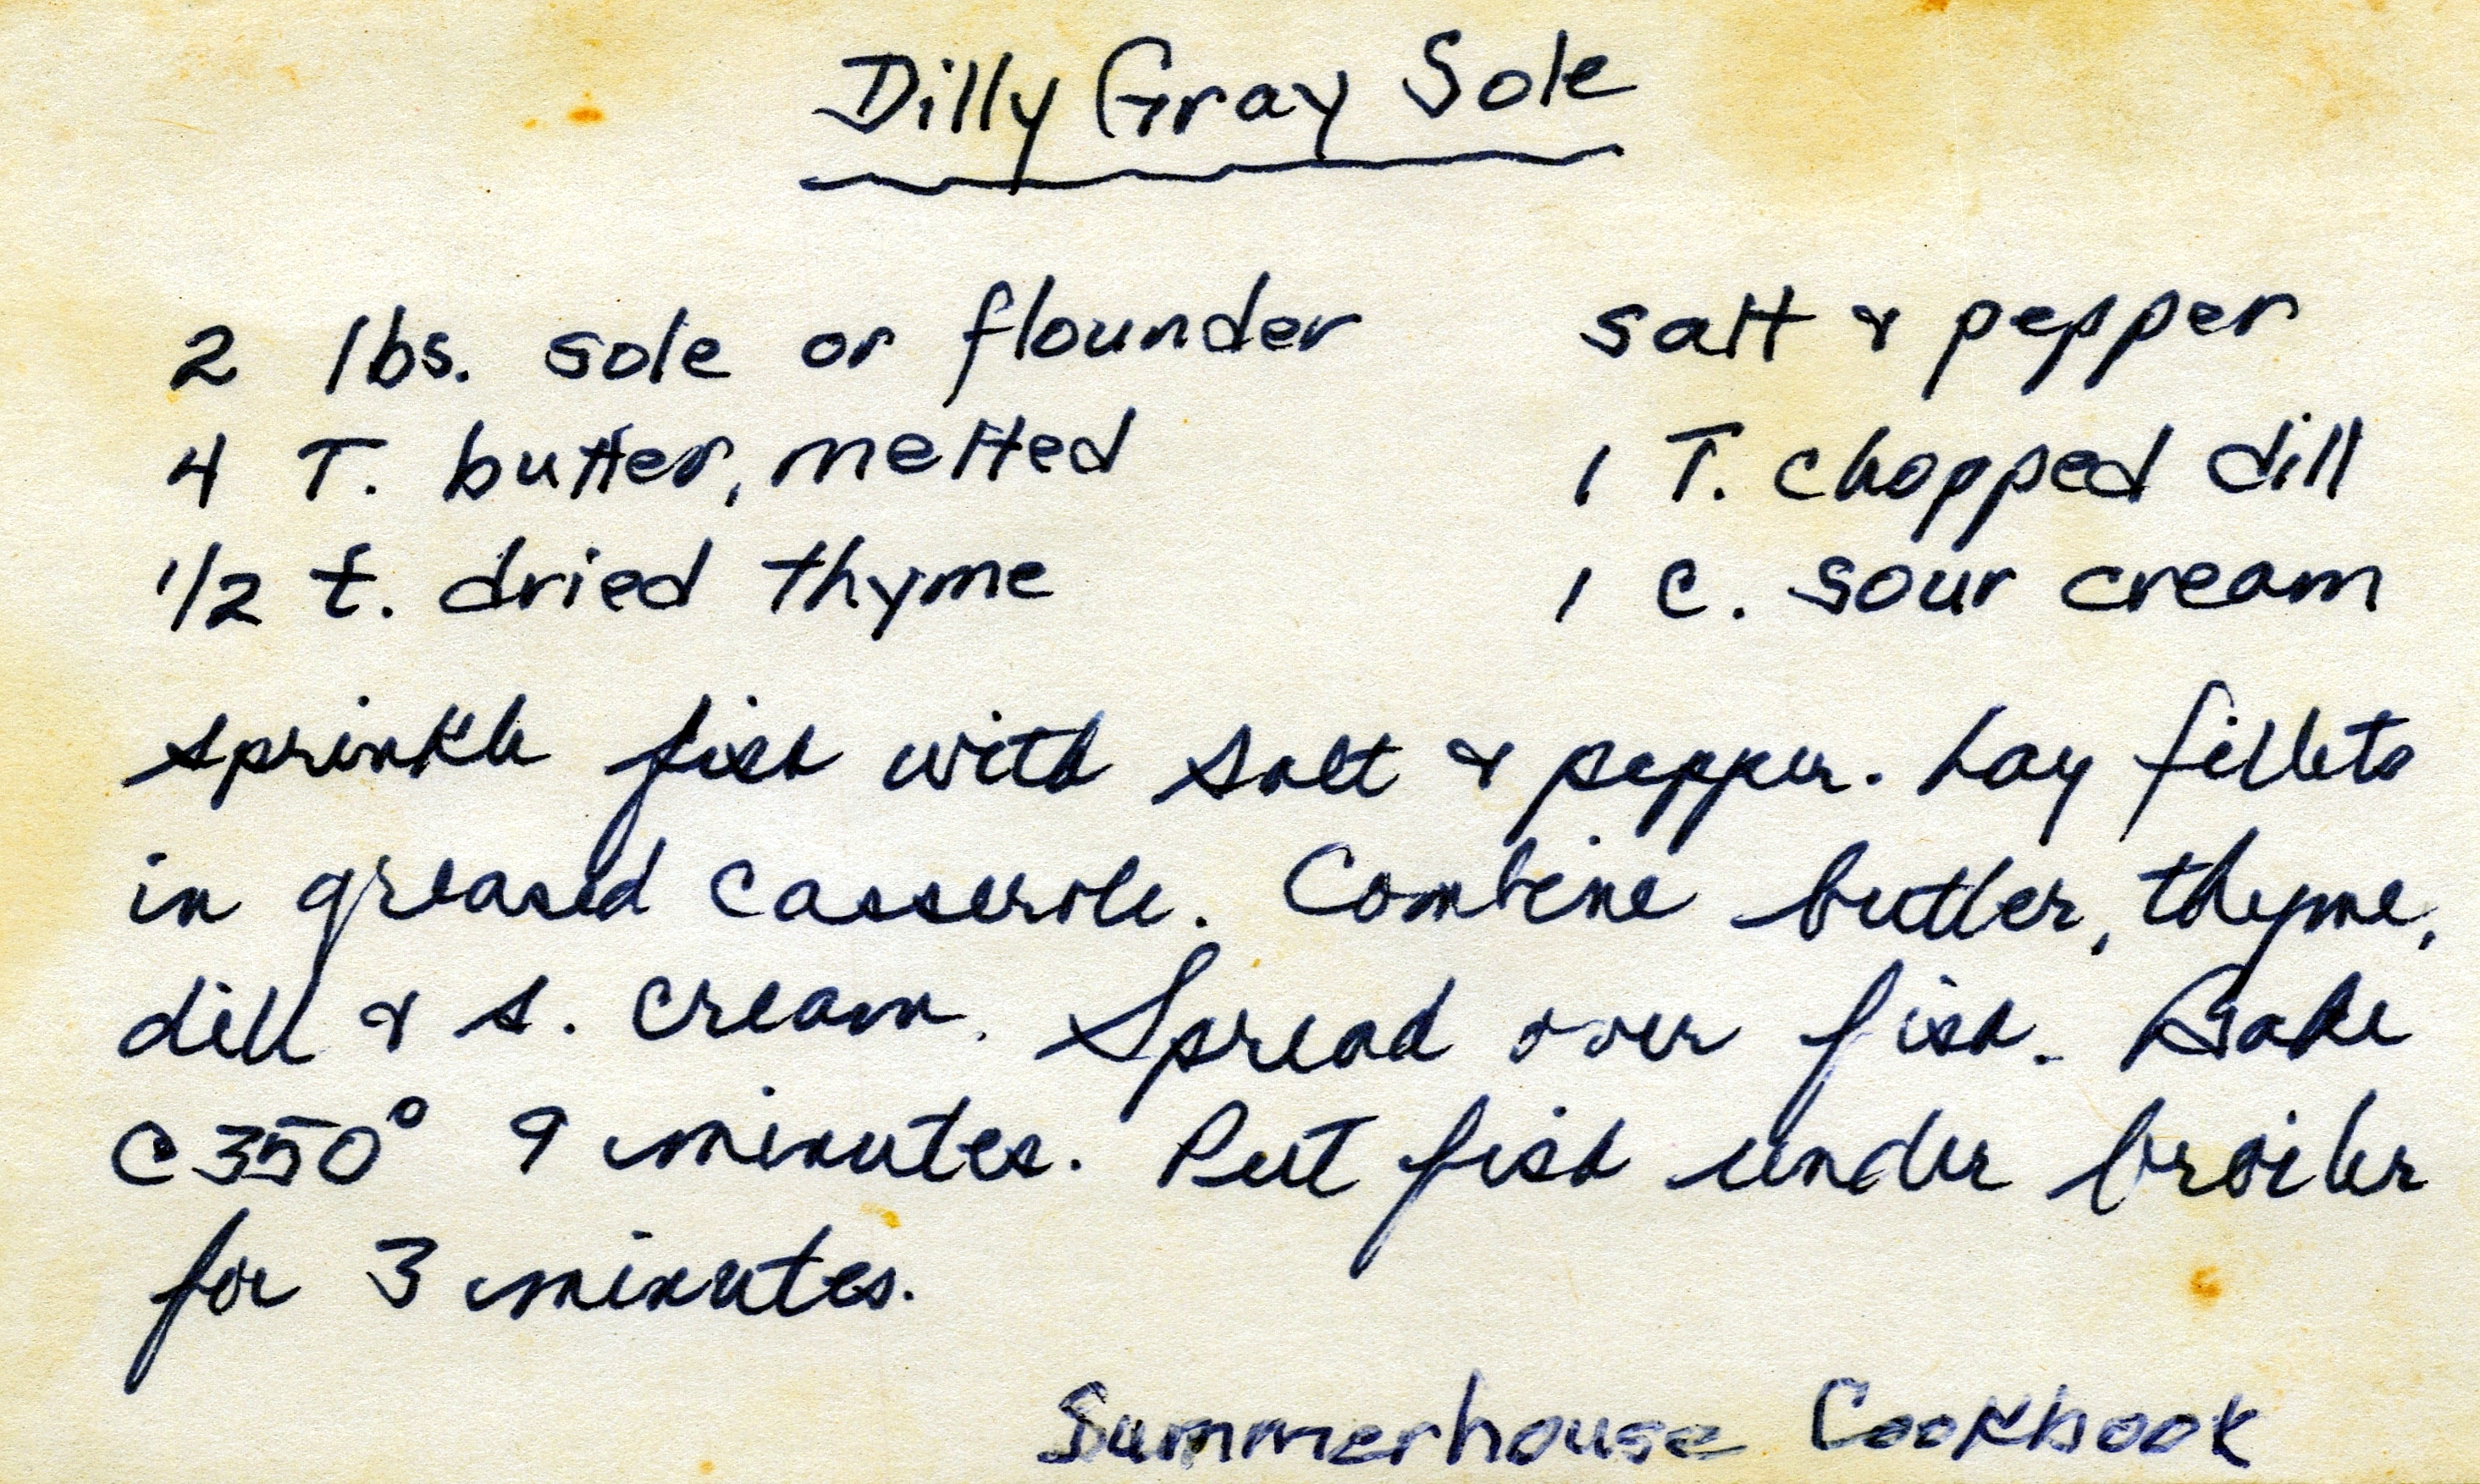 Dilly Gray Sole
2 lbs. sole or flounder salt & pepper
4 T. butter, melted 1 T. chopped dill
1/2 t. dried thyme 1 c. sour cream
Sprinkle fish with salt & pepper. Lay fillets
in greased casserole. Combine butter, thyme,
dill & s. cream. Spread over fish. Bake
@350° 9 minutes. Put fish under broiler
for 3 minutes.
Summerhouse Cookbook